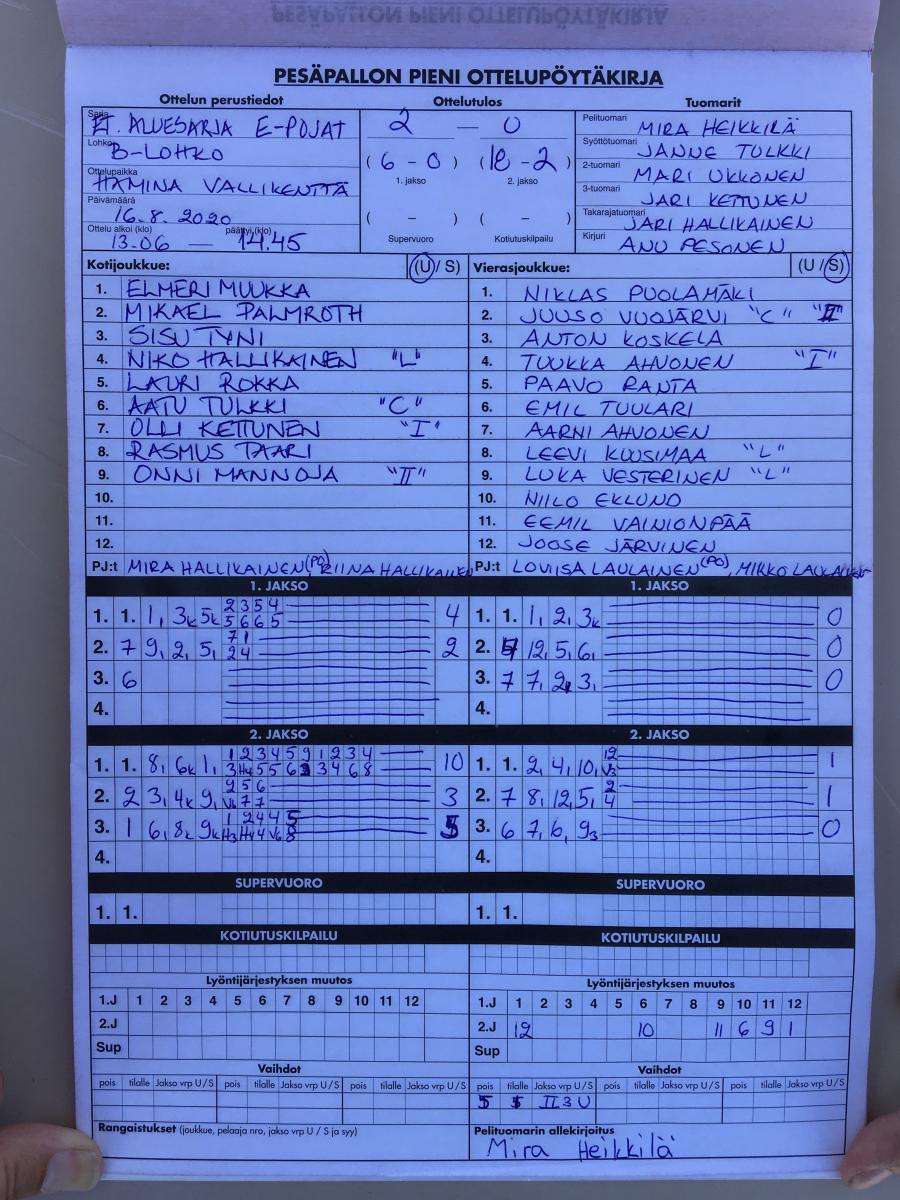 PESÄPALLON PIENI OTTELUPÖYTÄKIRJA
Ottelun perustiedot
Sarja ALUESARJA E-POJAT
Lohko B-LOHKO
Ottelupaikka HAMINA VALLIKENTTÄ
Päivämäärä 16.8.2020
Ottelu alkoi (klo) päättyi (klo)
13.06 — 14.45
Ottelutulos
2 — 0
(6 - 0) (18 - 2)
1. jakso 2. jakso
( – ) ( – )
Supervuoro Kotiutuskilpailu
Tuomarit
Pelituomari MIRA HEIKKILÄ
Syöttötuomari JANNE TULKKI
2-tuomari MARI UKKONEN
3-tuomari JARI KETTUNEN
Takarajatuomari JARI HALLIKAINEN
Kirjuri ANU PESONEN
Kotijoukkue: (U/ S)
1. ELMERI MUUKKA
2. MIKAEL PALMROTH
3. SISU TYNI
4. NIKO HALLIKAINEN "L"
5. LAURI ROKKA
6. AATU TULKKI "C"
7. OLLI KETTUNEN "I"
8. RASMUS TAARI
9. ONNI MANNOJA "II"
10.
11.
12.
PJ:t MIRA HALLIKAINEN (PO), RIINA HALLIKAINEN
Vierasjoukkue: (U/ S)
1. NIKLAS PUOLAMÄKI
2. JUUSO VUOJÄRVI "C" "II"
3. ANTON KOSKELA
4. TUUKKA AHVONEN "I"
5. PAAVO RANTA
6. EMIL TUULARI
7. AARNI AHVONEN
8. LEEVI KUUSIMAA "L"
9. LUKA VESTERINEN "L"
10. NIILO EKLUND
11. EEMIL VAINIONPÄÄ
12. JOOSE JÄRVINEN
PJ:t LOVIISA LAULAINEN (PO), MIRKO LAULAINEN
1. JAKSO
1. 1. 1, 3k 5k 2 3 5 4 4
5 6 6 5
2. 7 9, 2, 5, 7 1 2
2 4
3. 6
4.
1. JAKSO
1. 1. 1, 2, 3k 0
2. 12, 5, 6, 0
3. 7 7, 2, 3, 0
4.
2. JAKSO
1. 1. 8, 6k 1, 1 2 3 4 5 9 1 2 3 4 10
2. 2 3, 4k 9, 2 5 6 3
3. 1 6, 8k 9k 1 2 4 4 5 5
4.
2. JAKSO
1. 1. 2, 4, 10, 12 1
V3
2. 7 8, 12, 5, 2 1
4
3. 6 7, 6, 9 3 0
4.
SUPERVUORO
1. 1.
SUPERVUORO
1. 1.
KOTIUTUSKILPAILU
KOTIUTUSKILPAILU
Lyöntijärjestyksen muutos
1.J 1 2 3 4 5 6 7 8 9 10 11 12
2.J
Sup
Lyöntijärjestyksen muutos
1.J 1 2 3 4 5 6 7 8 9 10 11 12
2.J 12 10 11 6 9 1
Sup
Vaihdot
pois tilalle Jakso vrp U/S pois tilalle Jakso vrp U/S pois tilalle Jakso vrp U/S
Vaihdot
pois tilalle Jakso vrp U/S pois tilalle Jakso vrp U/S pois tilalle Jakso vrp U/S
II 3 U
Rangaistukset (joukkue, pelaaja nro, jakso vrp U / S ja syy)
Pelituomarin allekirjoitus
Mira Heikkilä